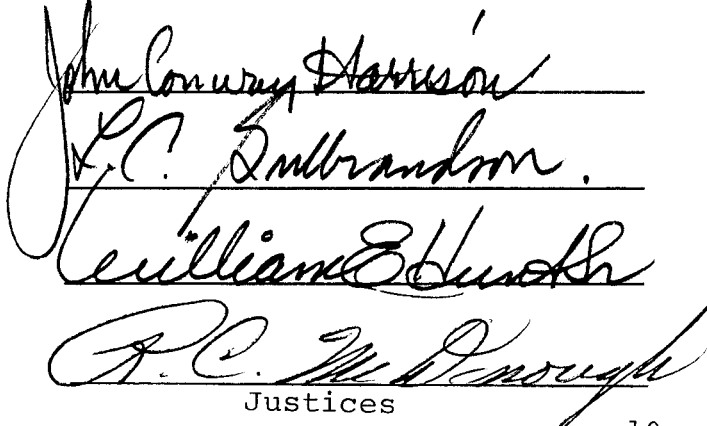 John Conway Harrison
L.C. Gulbrandson.
William E Hunt Sr
R.C. McDonough
Justices
10